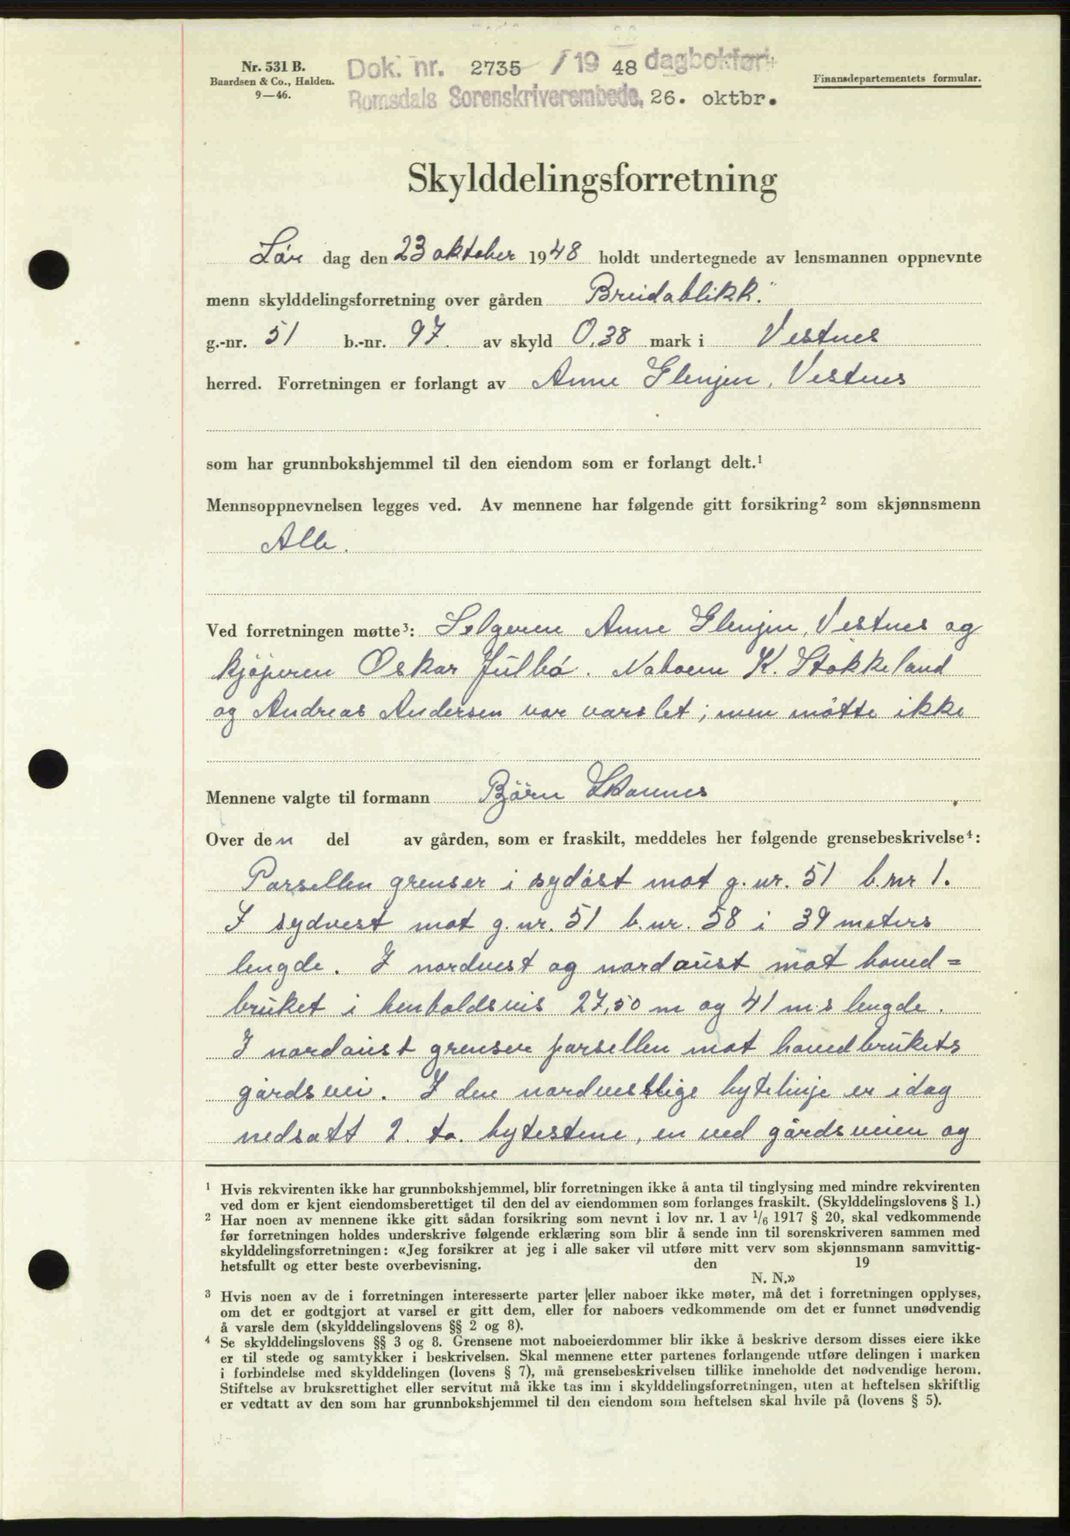 Nr. 531 B.
Baardsen & Co., Halden.
9—46.
Dok. nr. 2735 / 19 48 dagbokført
Romsdals Sorenskriverembede, 26. oktbr.
Finansdepartementets formular.
Skylddelingsforretning
Lør dag den 23 oktober 1948 holdt undertegnede av lensmannen oppnevnte
menn skylddelingsforretning over gården Breidablikk."
g.-nr. 51 b.-nr. 97. av skyld 0,38 mark i Vestnes
herred. Forretningen er forlangt av Anne Glenjen, Vestnes
som har grunnbokshjemmel til den eiendom som er forlangt delt.¹
Mennsoppnevnelsen legges ved. Av mennene har følgende gitt forsikring² som skjønnsmenn
Alle.
Ved forretningen møtte³: Selgeren Anne Glenjen, Vestnes og
kjøperen Oskar Julbø. Naboene K. Stokkeland
og Andreas Andersen var varslet; men møtte ikke
Mennene valgte til formann Bjørn Skaunes
Over den del av gården, som er fraskilt, meddeles her følgende grensebeskrivelse⁴:
Parsellen grenser i sydøst mot g.nr. 51 b.nr 1.
I sydvest mot g.nr. 51 b.nr. 58 i 39 meters
lengde. I nordvest og nordaust mot hoved=
bruket i henholdsvis 27,50 m og 41 m.s lengde.
I nordaust grenser parsellen mot hovedbrukets
gårdsvei. I den nordvestlige bytelinje er idag
nedsatt 2. to. bytestene, en ved gårdsveien og
¹ Hvis rekvirenten ikke har grunnbokshjemmel, blir forretningen ikke å anta til tinglysing med mindre rekvirenten
ved dom er kjent eiendomsberettiget til den del av eiendommen som forlanges fraskilt. (Skylddelingslovens § 1.)
² Har noen av mennene ikke gitt sådan forsikring som nevnt i lov nr. 1 av 1/6 1917 § 20, skal vedkommende
før forretningen holdes underskrive følgende erklæring som blir å sende inn til sorenskriveren sammen med
skylddelingsforretningen: «Jeg forsikrer at jeg i alle saker vil utføre mitt verv som skjønnsmann samvittig-
hetsfullt og etter beste overbevisning. den 19
N. N.»
³ Hvis noen av de i forretningen interesserte parter eller naboer ikke møter, må det i forretningen opplyses,
om det er godtgjort at varsel er gitt dem, eller for naboers vedkommende om det er funnet unødvendig
å varsle dem (skylddelingslovens §§ 2 og 8).
⁴ Se skylddelingslovens §§ 3 og 8. Grensene mot naboeierdommer blir ikke å beskrive dersom disses eiere ikke
er til stede og samtykker i beskrivelsen. Skal mennene etter partenes forlangende utføre delingen i marken
i forbindelse med skylddelingen (lovens § 7), må grensebeskrivelsen tillike inneholde det nødvendige herom.
Stiftelse av bruksrettighet eller servitut må ikke tas inn i skylddelingsforretningen, uten at heftelsen skriftlig
er vedtatt av den som har grunnbokshjemmel til den eiendom som heftelsen skal hvile på (lovens § 5).